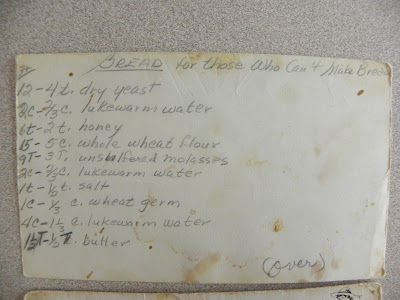 BREAD for those Who Can't Make Bread
12 - 4 t. dry yeast
2c - 2/3 c. lukewarm water
6t - 2 t. honey
15 - 5 c. whole wheat flour
9T - 3 T. unsulfered molasses
2c - 2/3 c. lukewarm water
1t - 1/3 t. salt
1c - 1/3 c. wheat germ
4c - 1 1/3 c. lukewarm water
T - 1/2 T. butter
(over)